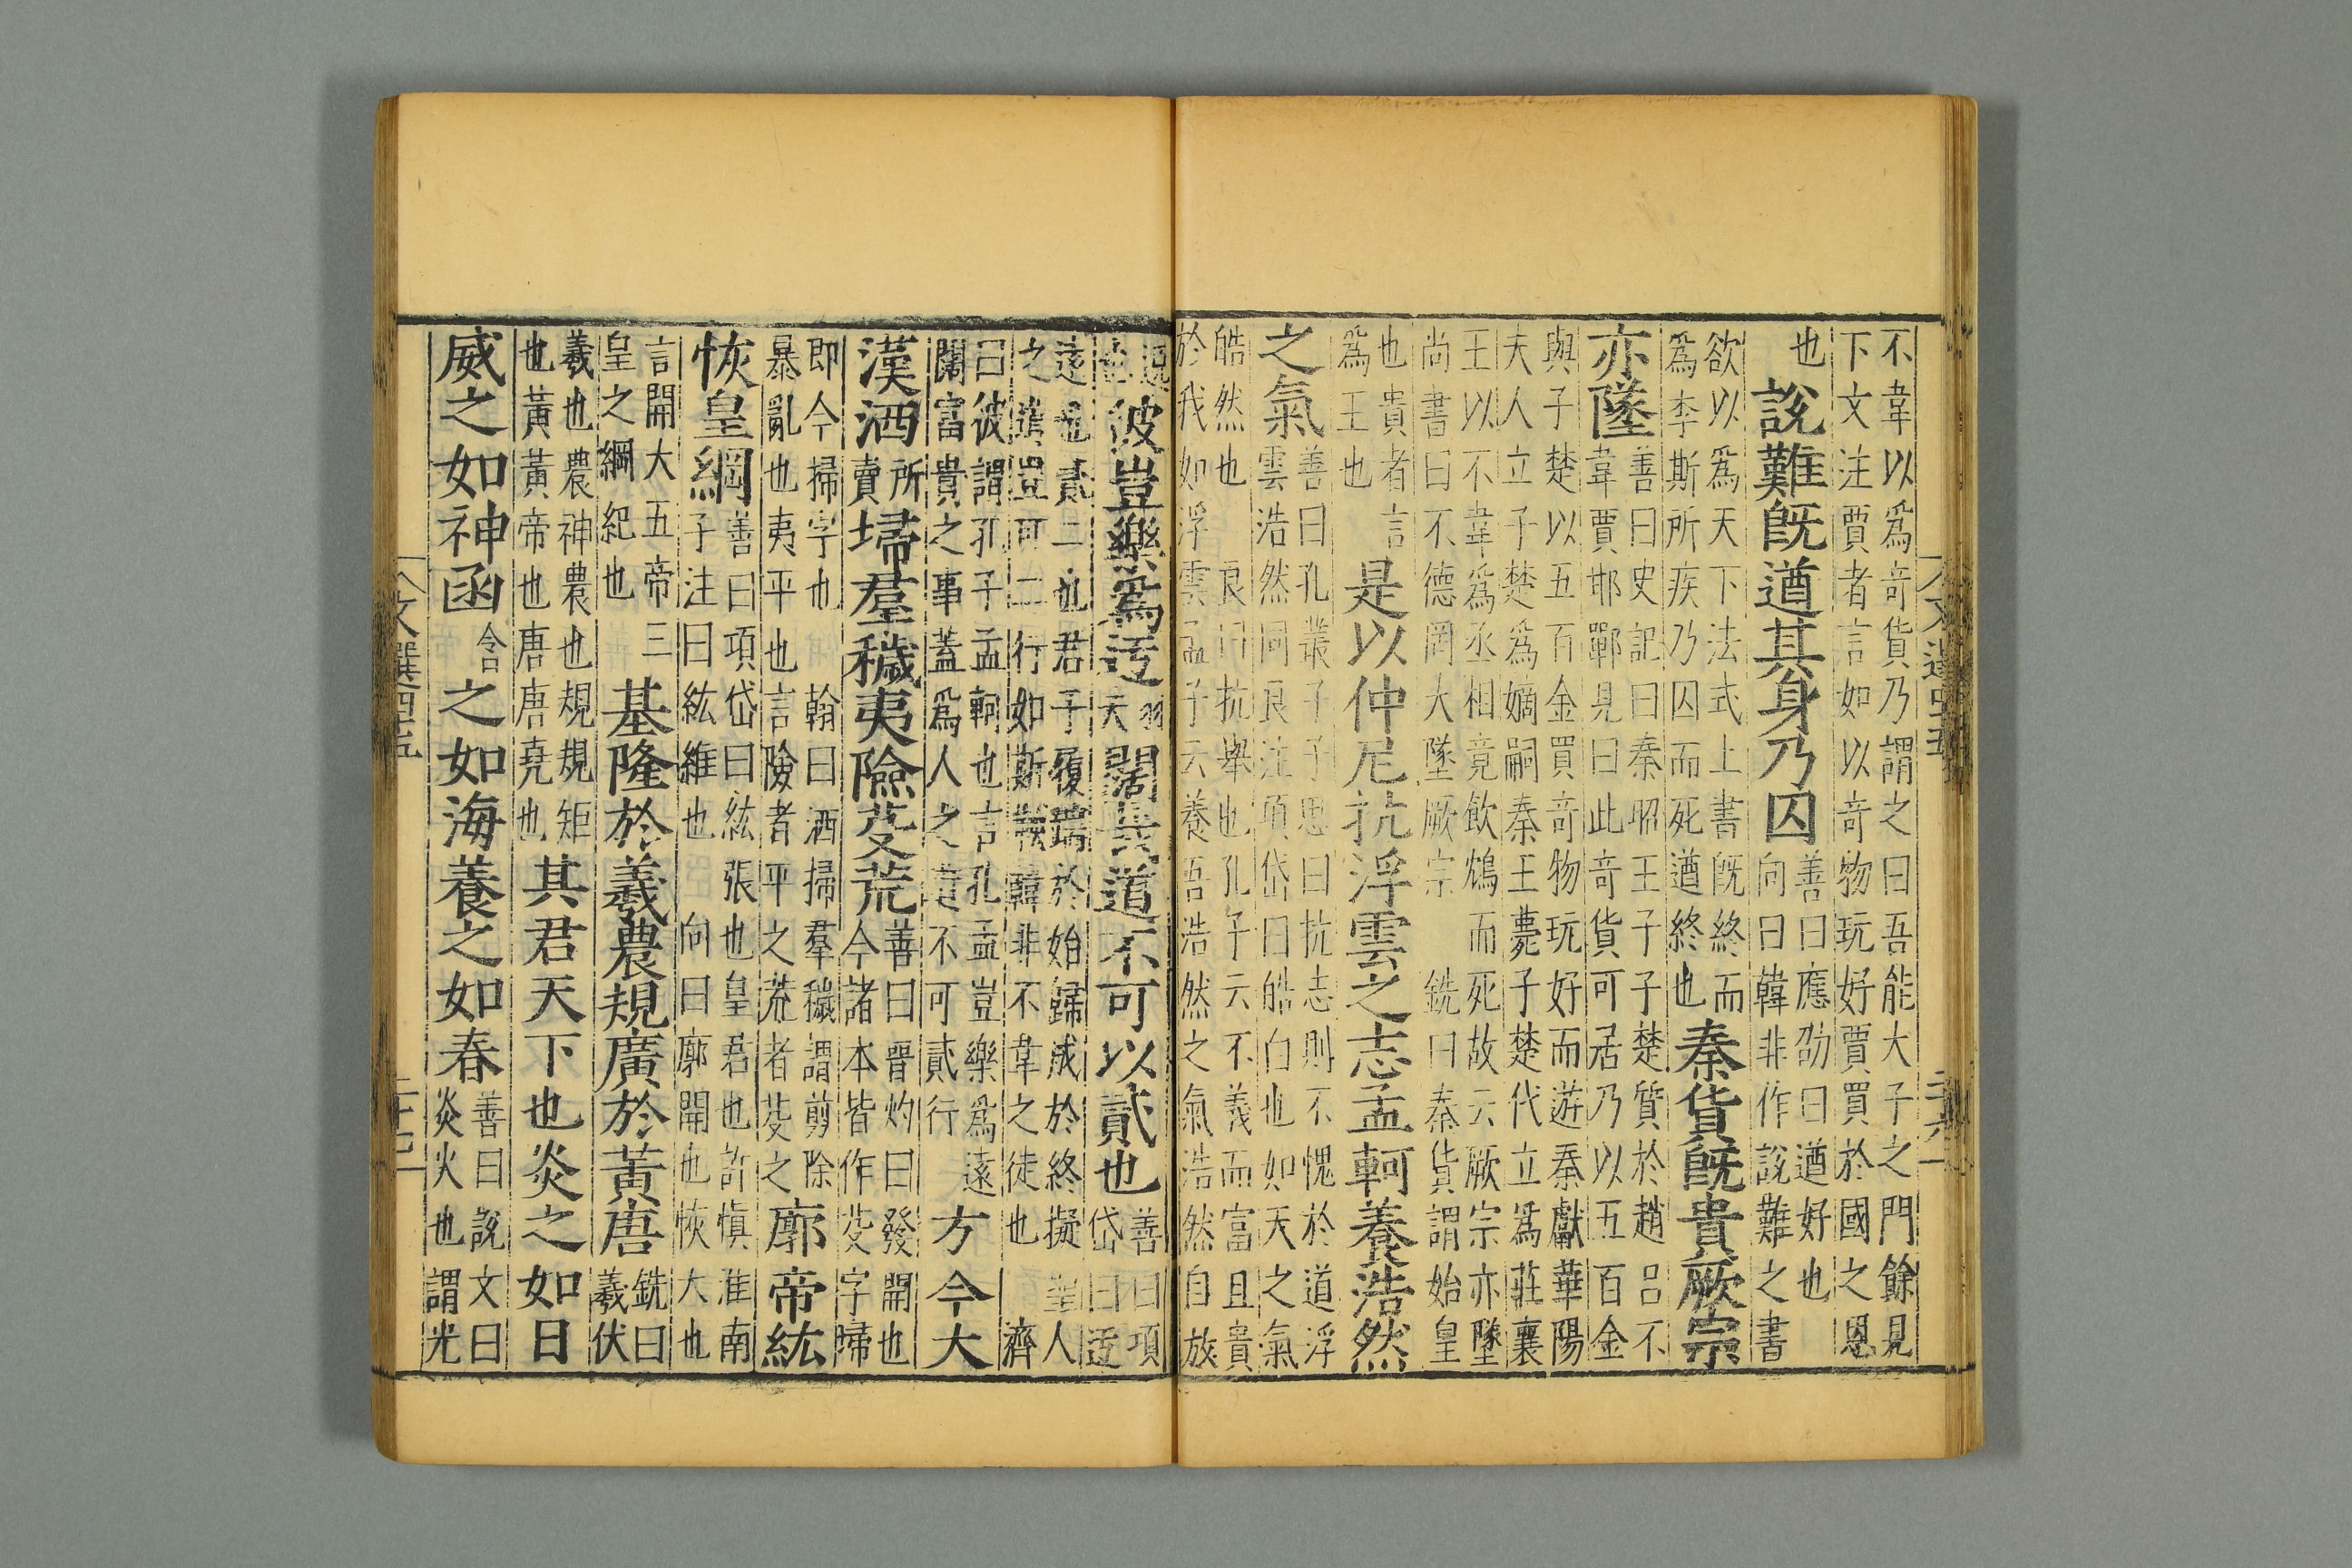 不韋以爲奇貨乃謂之曰吾能大子之門餘見
下文注賈者言如以奇物玩好賈買於國之恩
也
說難旣遒其身乃囚
善曰應劭曰遒好也
向曰韓非作說難之書
欲以爲天下法式上書旣終而
爲李斯所疾乃囚而死遒終也
秦貨旣貴厥宗
亦隧
善曰史記曰秦昭王子子楚質於趙呂不
韋賈邯鄲見曰此奇貨可居乃以五百金
與子楚以五百金買奇物玩好而遊秦獻華陽
夫人立子楚爲嫡嗣秦王薨子楚代立爲莊襄
王以不韋爲丞相竟飲鴆而死故云厥宗亦墜
尚書曰不德罔大墜厥宗 銑曰秦貨謂始皇
也貴者言
爲王也
是以仲尼抗浮雲之志孟軻養浩然
之氣
善曰孔叢子子思曰抗志則不愧於道浮
雲浩然同良注項岱曰皓白也如天之氣
皓然也 良曰抗舉也孔子云不義而富且貴
於我如浮雲孟子云養吾浩然之氣浩然自放
彼豈樂爲迂
闊哉道不可以貳也
善曰項
岱曰迂
遠也貳二也君子履端於始歸成於終擬聖人
之道豈可二行如斯鞅韓非不韋之徒也 濟
曰彼謂孔子孟軻也言孔孟豈樂爲遠
闊富貴之事蓋爲人之道不可貳行
方今大
漢洒
所
賣
埽羣穢夷險芟荒
善曰晉灼曰發開也
今諸本皆作芟字埽
即今掃字也 翰曰洒掃羣穢謂剪除
暴亂也夷平也言險者平之荒者芟之
廓帝紘
恢皇綱
善曰項岱曰紘張也皇君也許慎淮南
子注曰紘維也 向曰廓開也恢大也
言開大五帝三
皇之綱紀也
基隆於羲農規廣於黃唐
銑曰
羲伏
羲也農神農也規規矩
也黃黃帝也唐唐堯也
其君天下也炎之如日
威之如神函
含
之如海養之如春
善曰說文曰
炎火也 謂光
文選四五